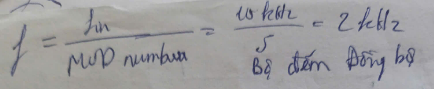 f = fin / MOD number = 10 kHz / 5 = 2 kHz
Bộ đếm Đồng bộ